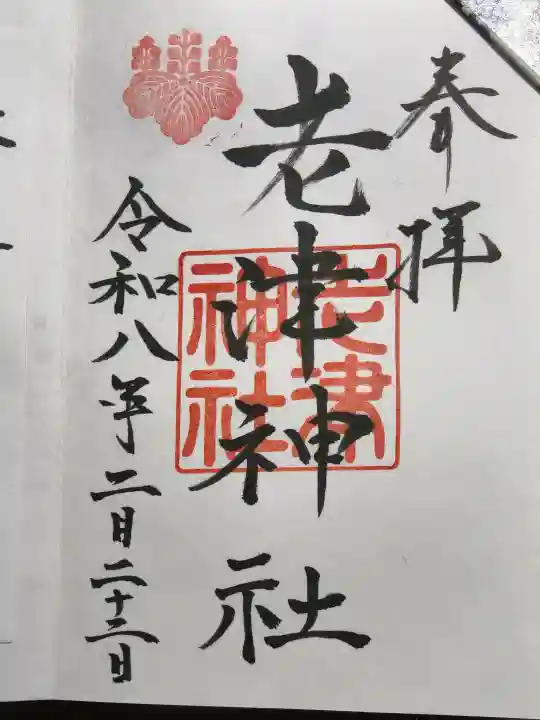 奉拝
老津神社
老津神社
令和八年二月二十三日